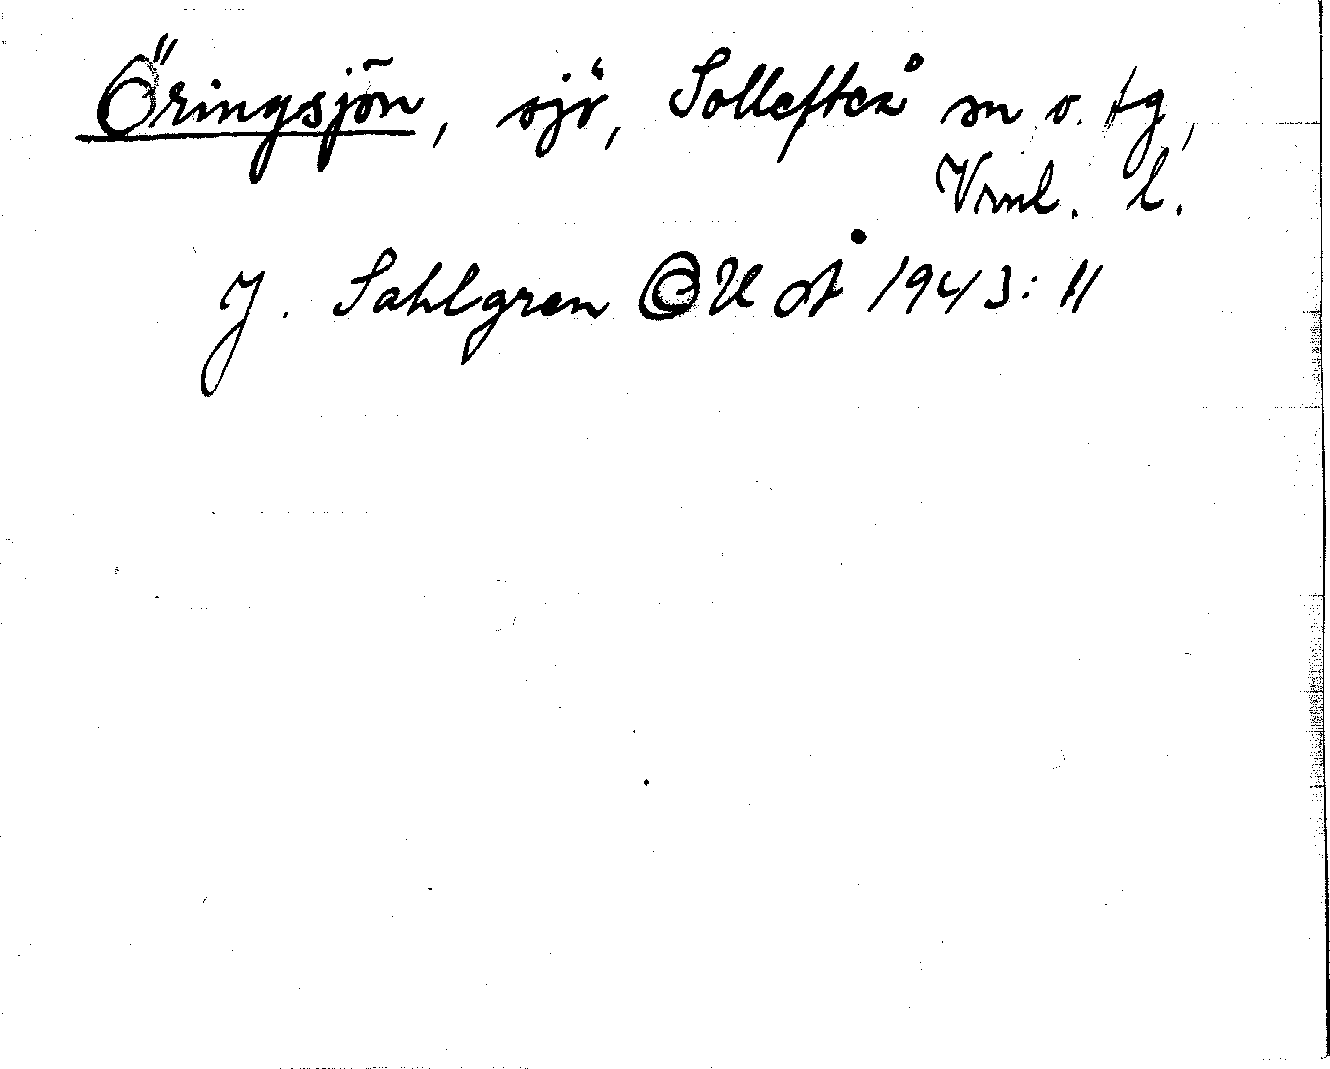 Öringsjön, sjö, Sollefteå sn o. tg,
Vrml. l.
J. Sahlgren OUÅ 1943: 11